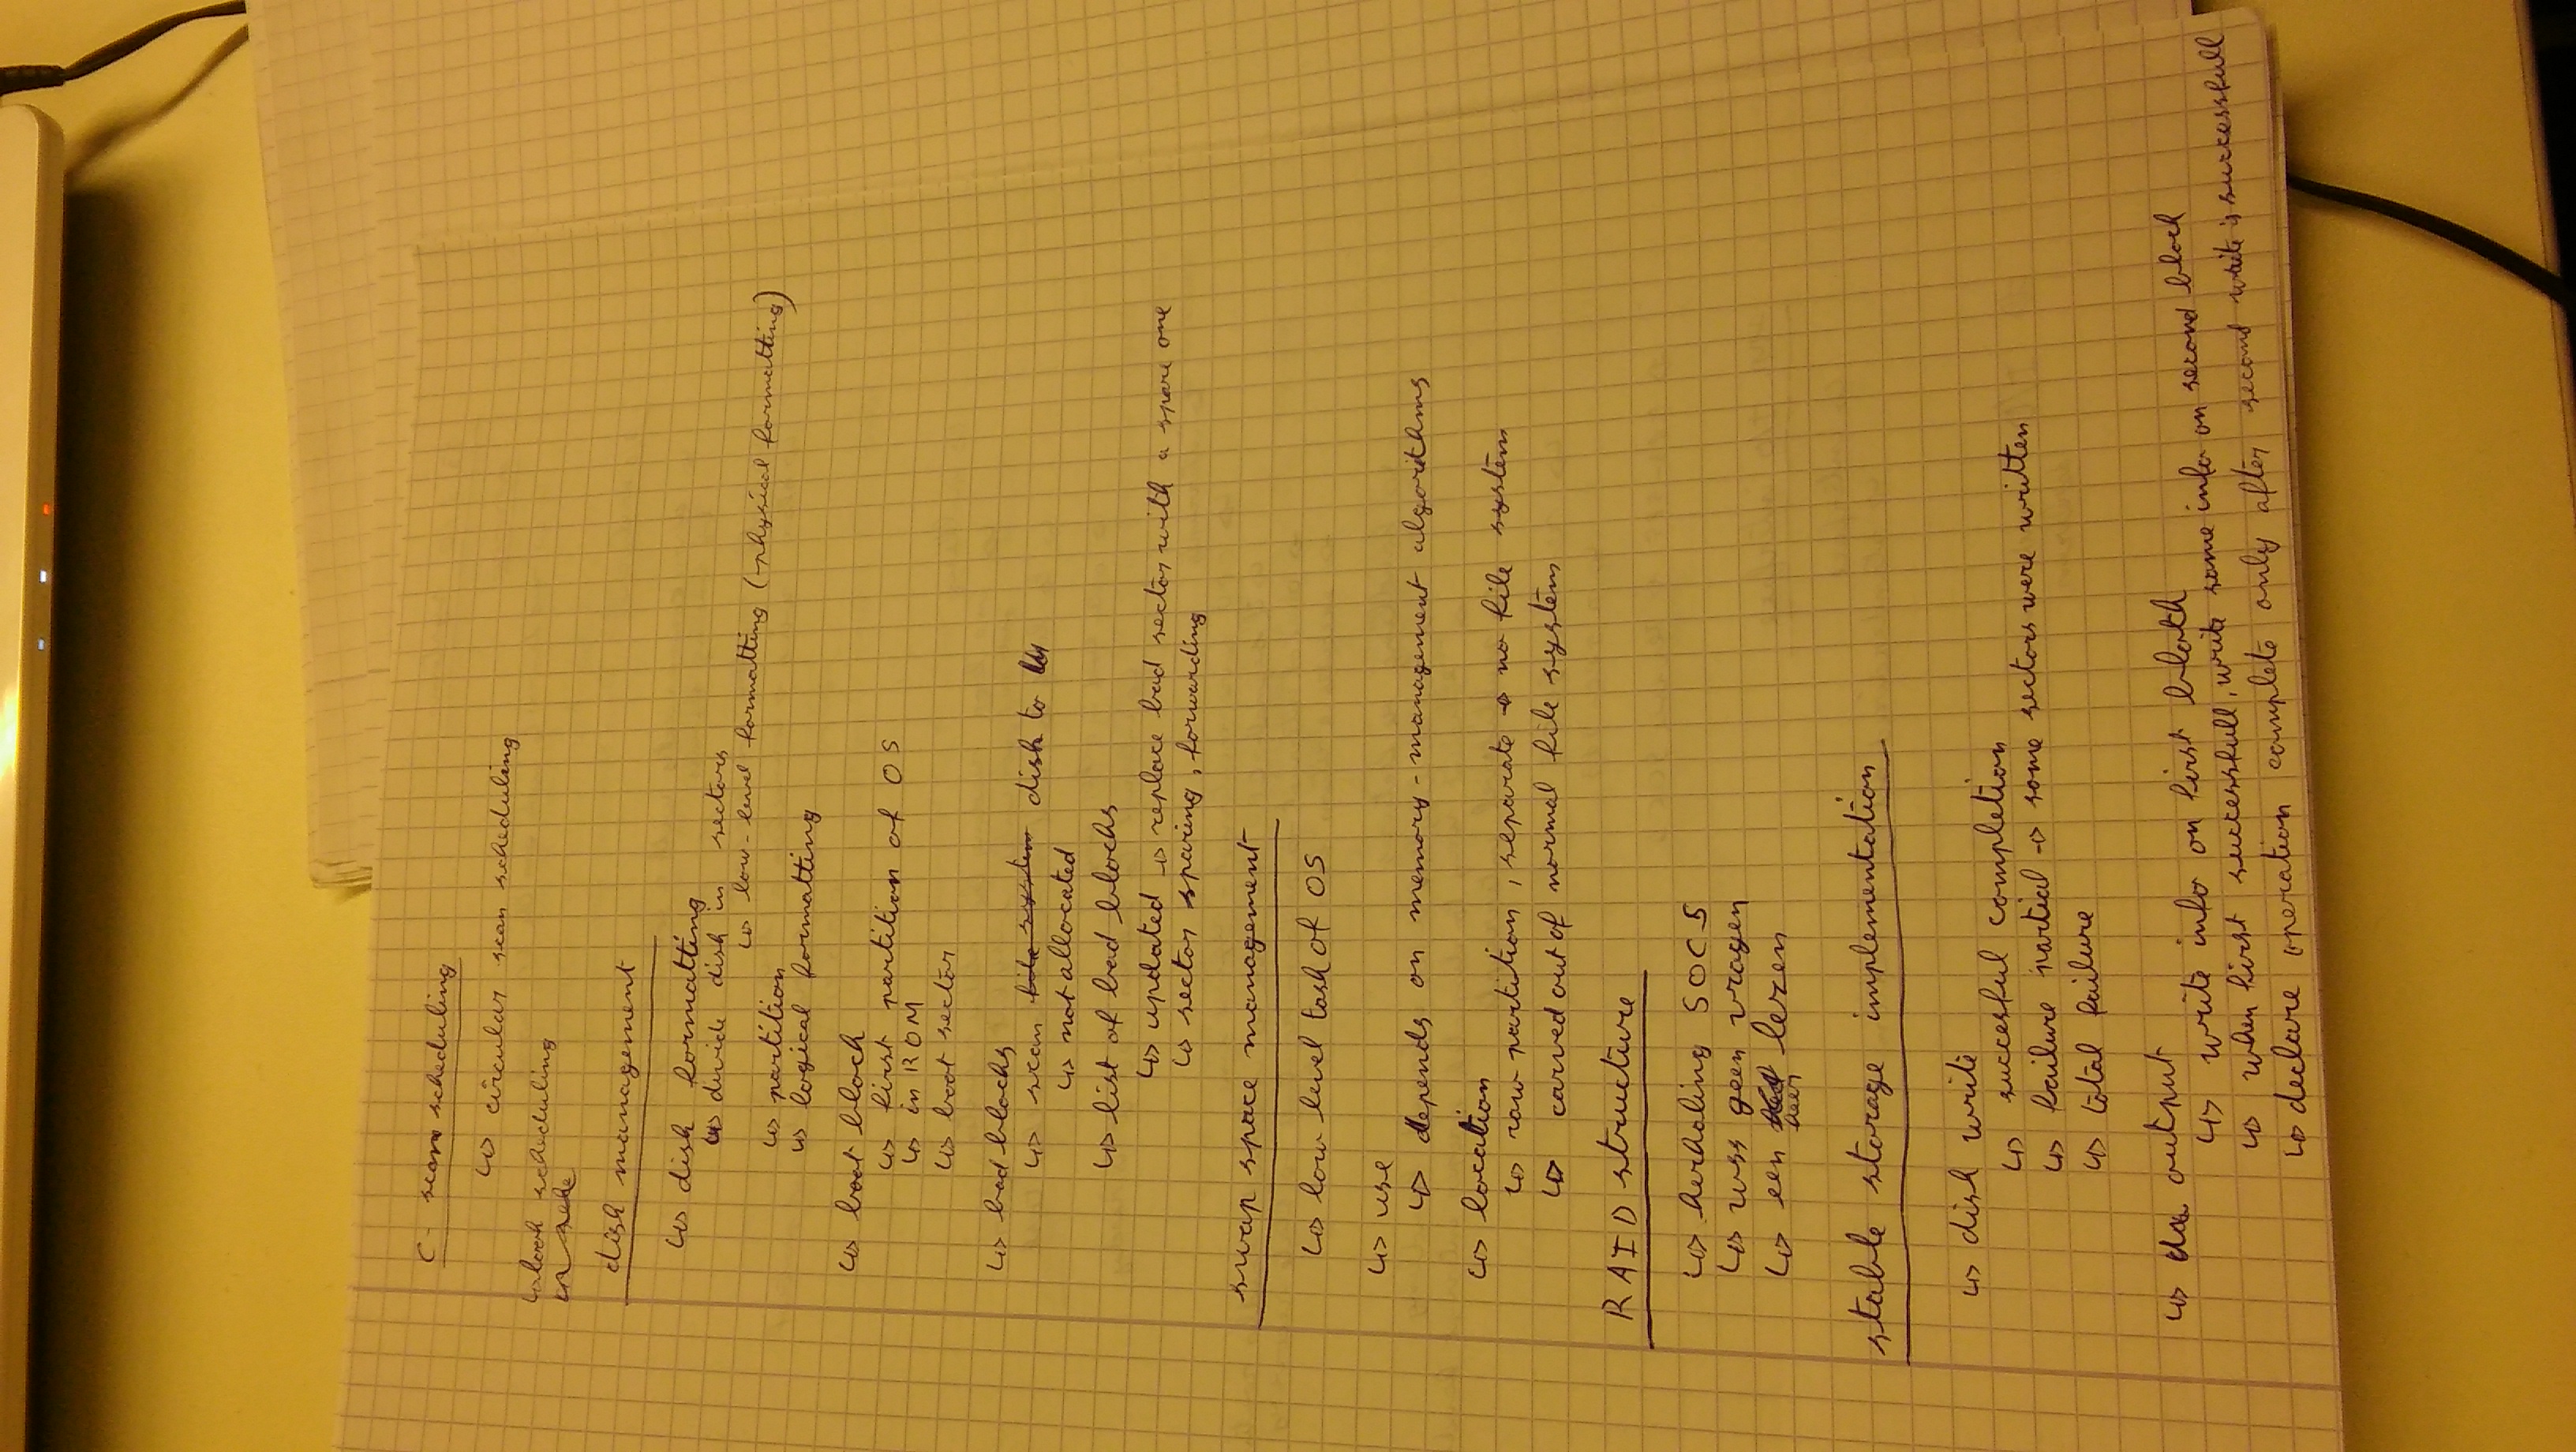 C-scan scheduling
↳ circular scan scheduling
↳ look scheduling
disk management
↳ disk formatting
↳ divide disk in sectors
↳ low-level formatting (-physical formatting)
↳ partition
↳ logical formatting
↳ boot block
↳ first partition of OS
↳ in ROM
↳ boot sector
↳ bad blocks
↳ scan file system disk to
↳ not allocated
↳ list of bad blocks
↳ updated → replace bad sector with a spare one
↳ sector sparing, forwarding
swap space management
↳ low level task of OS
↳ use
↳ depends on memory-management algorithms
↳ location
↳ raw partition, separate → no file system
↳ carved out of normal file system
RAID structure
↳ herhaling SOCS
↳ wss geen vragen
↳ een keer lezen
stable storage implementation
↳ disk write
↳ succesful completion
↳ failure partial → some sectors were written
↳ total failure
↳ output
↳ write info on first block
↳ when first successfull, write same info on second block
↳ declare operation complete only after second write is successfull